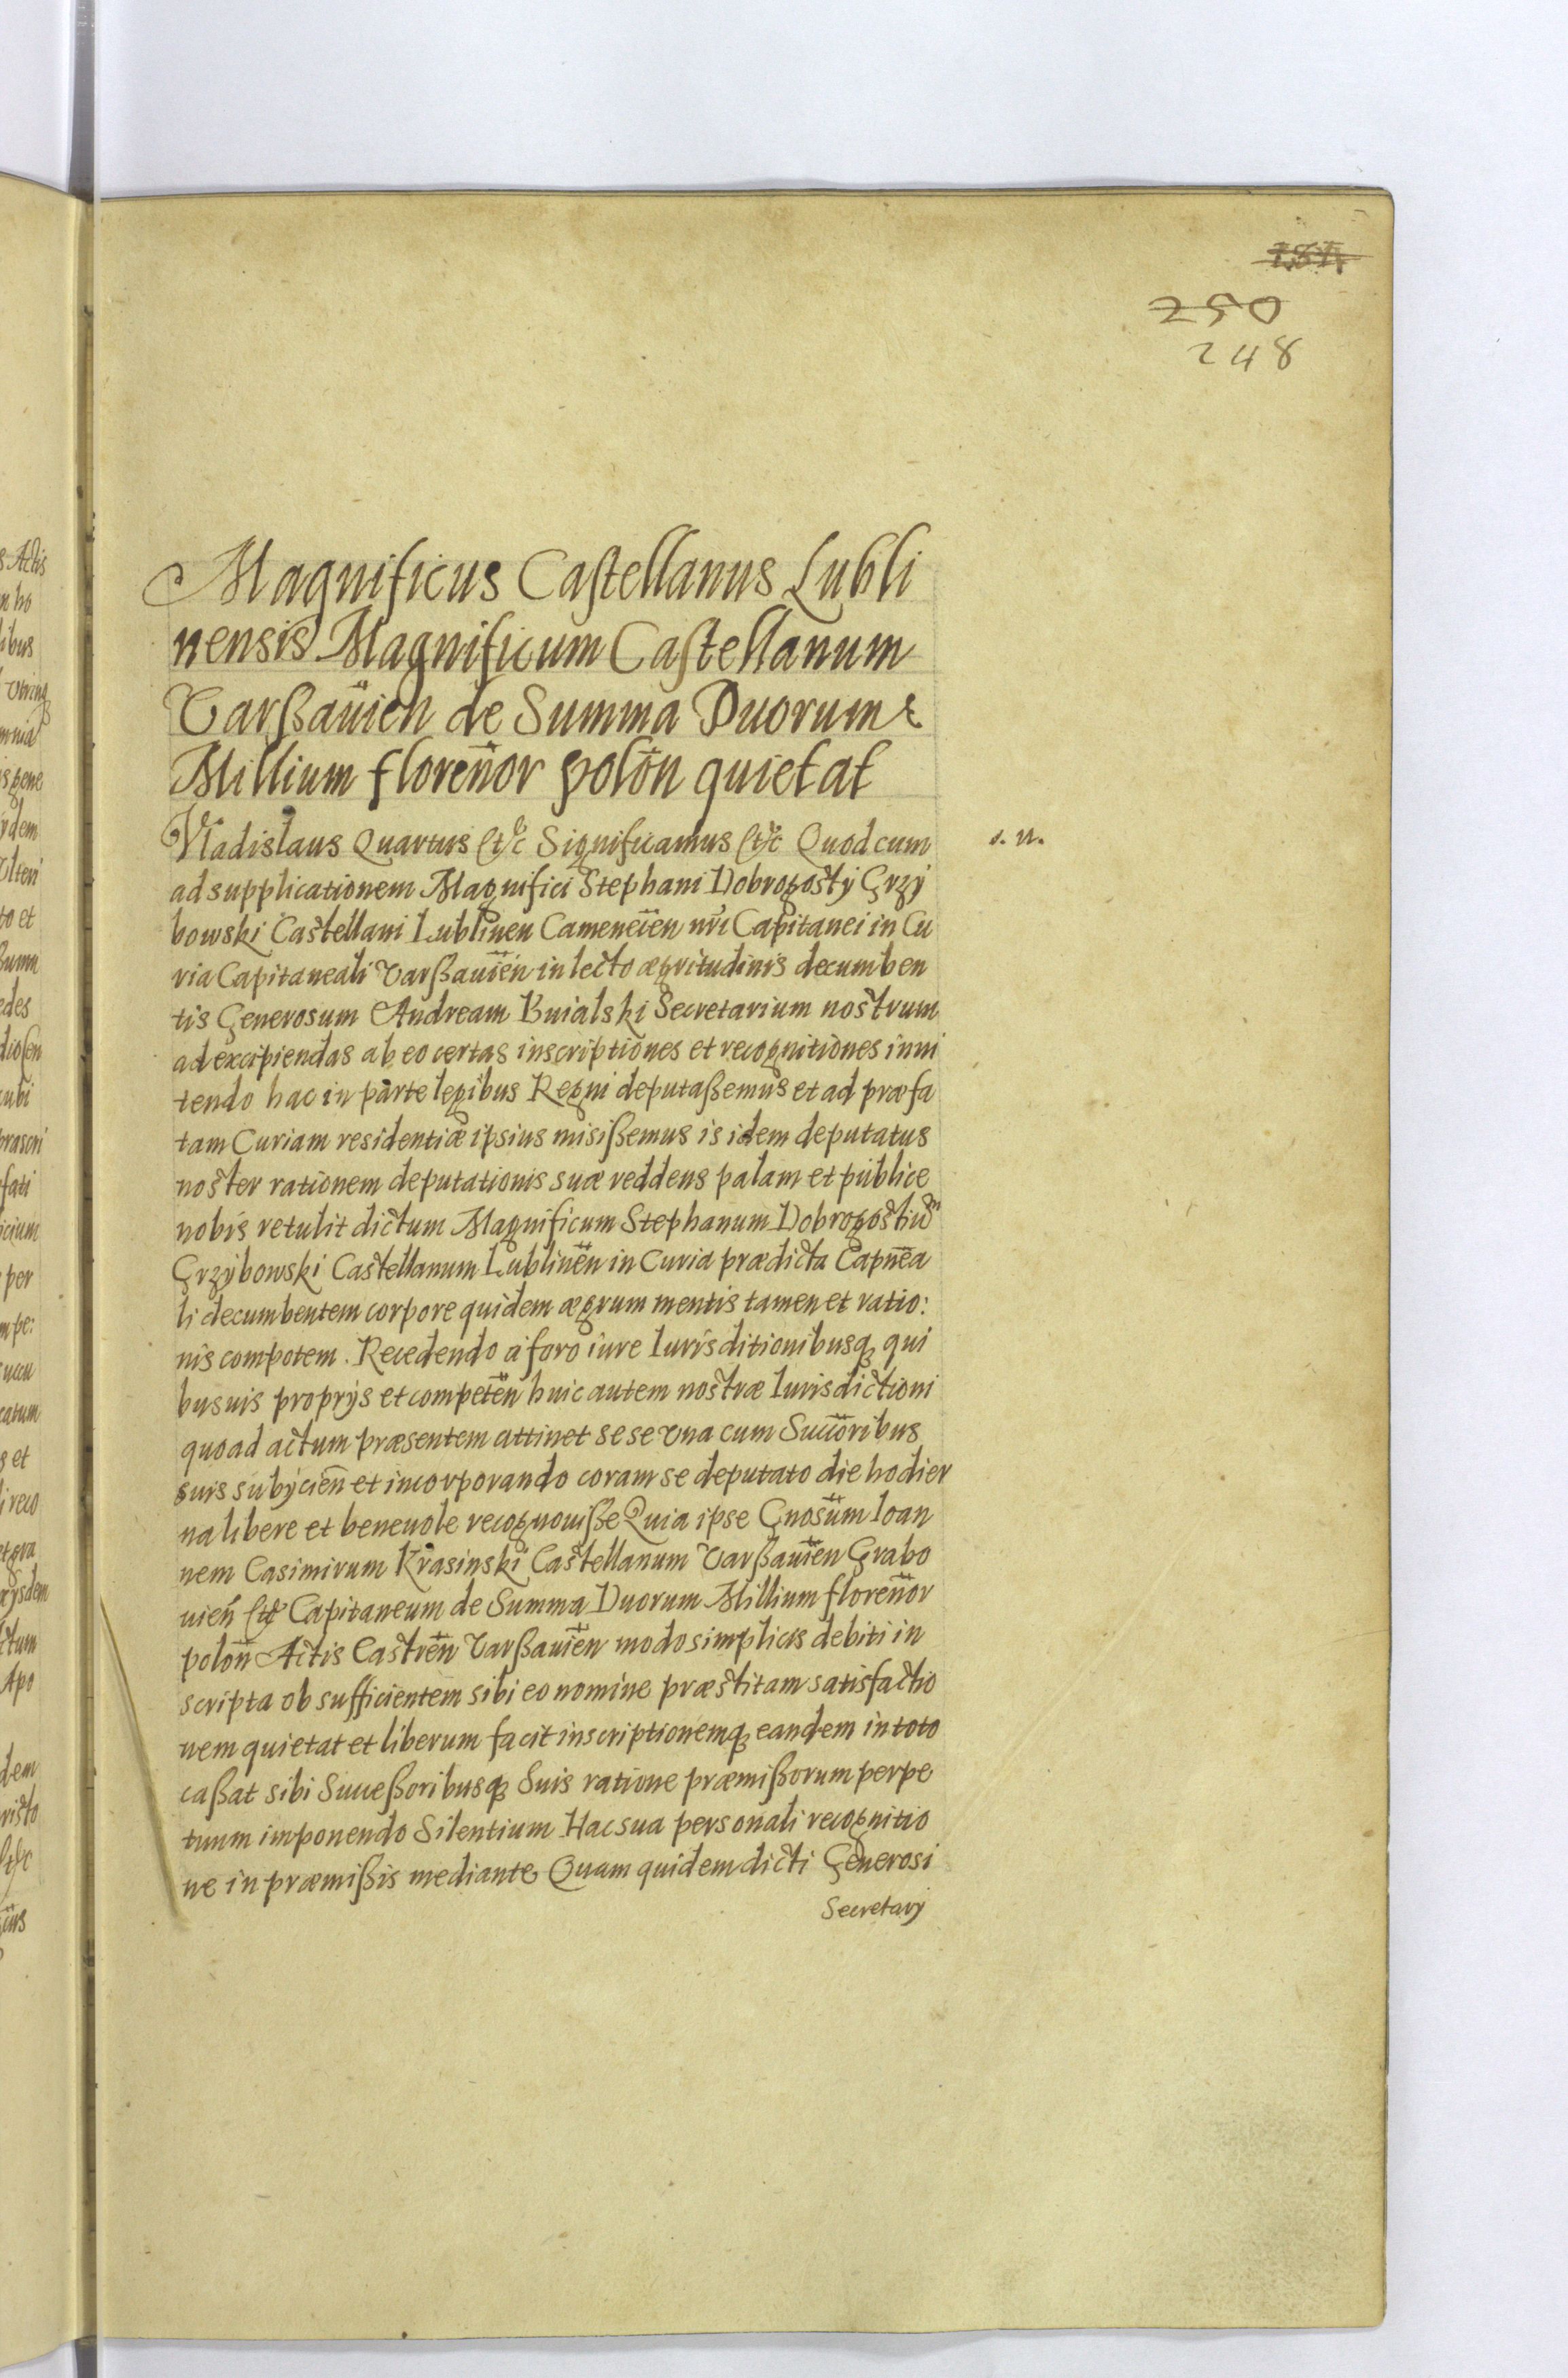 250
248
Magnificus Castellanus Lubli
nensis Magnificum Castellanum
Varßauien de Summa Duorum
Millium florenor polon quietat
Vladislaus Quartus etc Significamus etc Quod cum
s. n.
ad supplicationem Magnifici Stephani Dobrogostÿ Grzÿ
bowski Castellani Lublinen Cameneien nri Capitanei in Cu
ria Capitaneali Varßauien in lecto ægritudinis decumben
tis Generosum Andream Buialski Secretarium nostrum
ad excipiendas ab eo certas inscriptiones et recognitiones inni
tendo hac in parte legibus Regni deputaßemus et ad præfa
tam Curiam residentiæ ipsius misißemus is idem deputatus
noster rationem deputationis suæ reddens palam et publice
nobis retulit dictum Magnificum Stephanum Dobrogostium
Grzÿbowski Castellanum Lublinen in Curia prædicta Capnea
li decumbentem corpore quidem ægrum mentis tamen et ratio:
nis compotem. Recedendo a foro iure Iurisditionibusq qui
busuis proprÿs et competen huic autem nostræ Iurisdictioni
quoad actum præsentem attinet sese vna cum Succoribus
suis subÿcien et incorporando coram se deputato die hodier
na libere et beneuole recognouiße Quia ipse Gnosum Ioan
nem Casimirum Krasinski Castellanum Varßauien Grabo
uien etc Capitaneum de Summa Duorum Millium florenor
polon Actis Castren Varßauien modo simplicis debiti in
scripta ob sufficientem sibi eo nomine præstitam satisfactio
nem quietat et liberum facit inscriptionemq eandem in toto
caßat sibi Succeßoribusq Suis ratione præmißorum perpe
tuum imponendo Silentium Hac sua personali recognitio
ne in præmißis mediante Quam quidem dicti Generosi
Secretarÿ